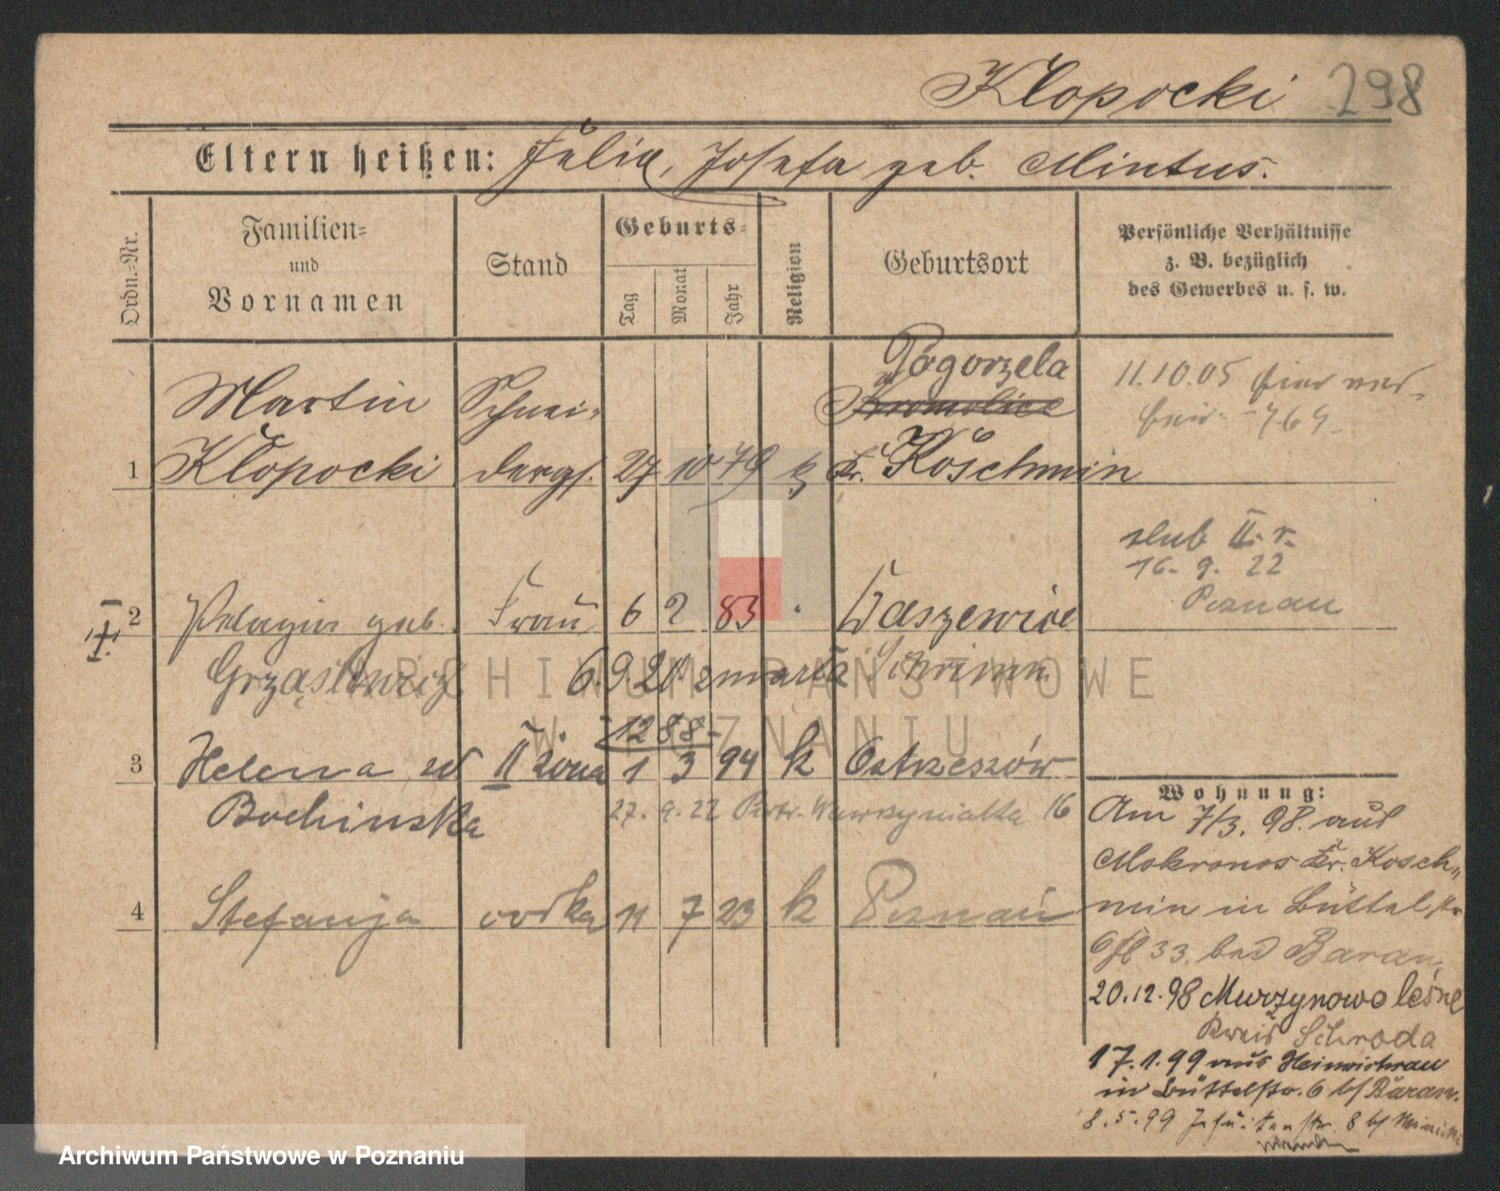 Kłopocki 298
Eltern heißen: Julia, Josefa geb. Mintus.
Ordn.-Nr.
Familien-
und
Vornamen
Stand
Geburts-
Tag
Monat
Jahr
Religion
Geburtsort
Persönliche Verhältnisse
z. B. bezüglich
des Gewerbes u. s. w.
Pogorzela
Martin Schnei- Kromolice
1 Kłopocki dergs. 27 10 79 k Kr. Koschmin
11.10.05 hier ver-
764
ślub II. r.
16. 9. 22
Poznań
I 2 Pelagia geb. Frau 6 2 83 Waszewice
Grząslewicz 6.9.20 zmarła Schrimm
1288
3 Helena w II żona 1 3 94 k Ostrzeszów
Bochinska 27. 9. 22 Wawrzyniaka 16
4 Stefanja córka 11 7 23 k Poznań
Wohnung:
Am 7/3. 98. aus
Mokronos Kr. Kosch-
min in Büttelstr.
6 33. bei Baran
20.12.98 Murzynowo leśne
Kreis Schroda
17.1.99 aus Heinrichsau
in Büttelstr. 6 b/ Baran.
8.5.99 Jesuitenstr. 8 b/
ARCHIWUM PAŃSTWOWE
W POZNANIU
Archiwum Państwowe w Poznaniu